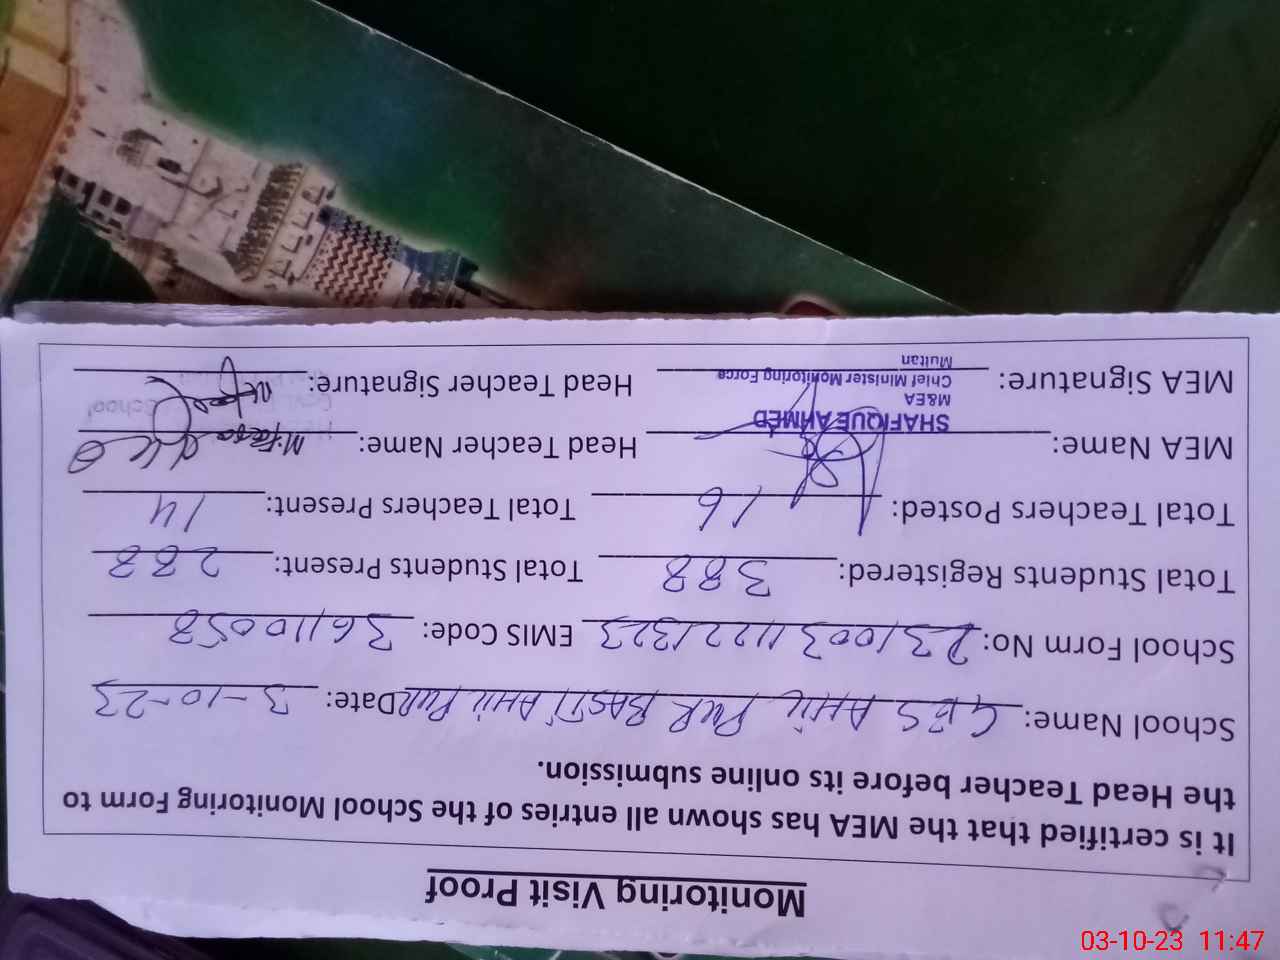 Monitoring Visit Proof
It is certified that the MEA has shown all entries of the School Monitoring Form to
the Head Teacher before its online submission.
School Name: GES AHIL PUR BASTI AHIL PUR Date: 3-10-23
School Form No: 2310031122 1323 EMIS Code: 36110058
Total Students Registered: 388 Total Students Present: 288
Total Teachers Posted: 16 Total Teachers Present: 14
MEA Name: Head Teacher Name:
SHAFIQUE AHMED
M&EA
Chief Minister Monitoring Force
Multan
MEA Signature: Head Teacher Signature:
School
03-10-23 11:47